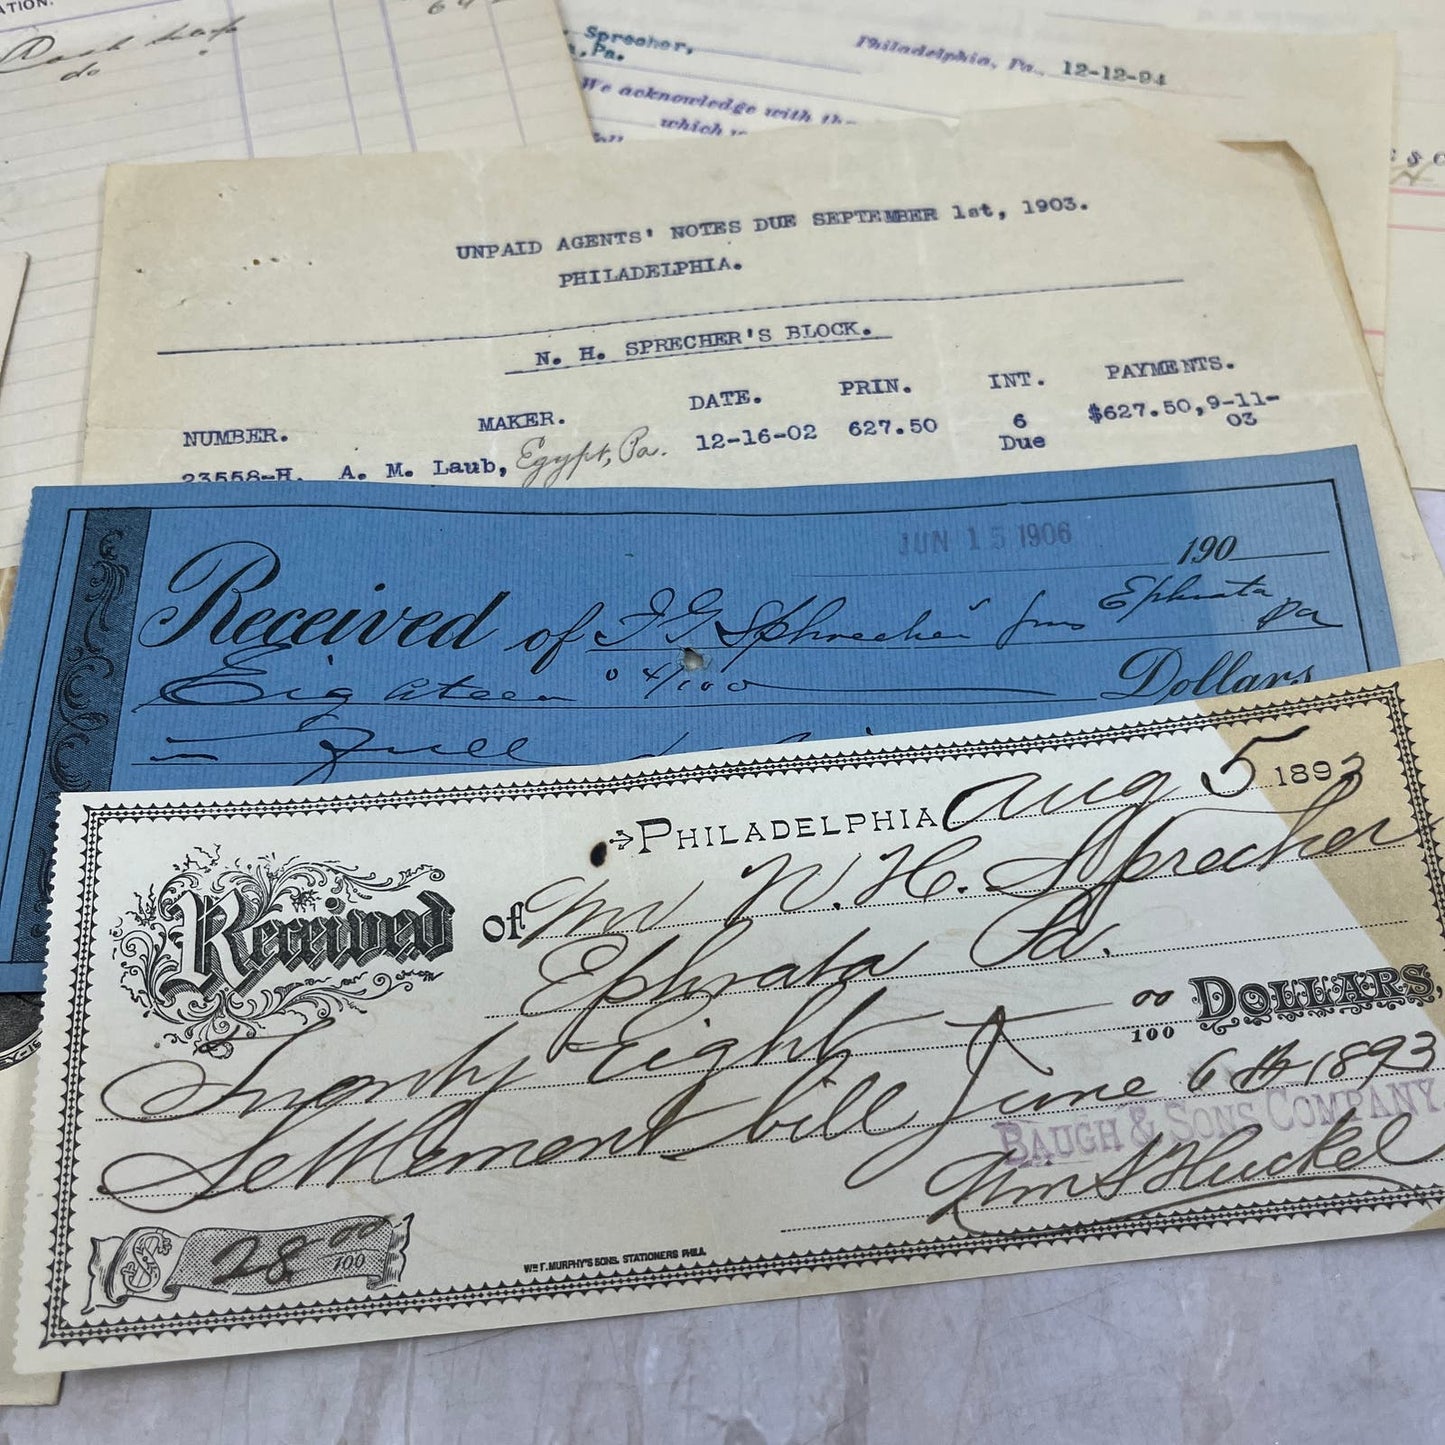 ATION.
Cash
do
Sprecher,
Pa.
Philadelphia, Pa., 12-12-94
We acknowledge with the
which
UNPAID AGENTS' NOTES DUE SEPTEMBER 1st, 1903.
PHILADELPHIA.
N. H. SPRECHER'S BLOCK.
NUMBER. MAKER. DATE. PRIN. INT. PAYMENTS.
23558-H. A. M. Laub, Egypt, Pa. 12-16-02 627.50 6 $627.50,9-11-
Due 03
JUN 15 1906 190
Received of I G Sphrecher from Ephrata Pa
Eighteen 04/100 Dollars
in Full
PHILADELPHIA Aug 5 1893
Received of Mr N. H. Sprecher
Ephrata Pa.
Twenty Eight 00/100 DOLLARS,
Settlement bill June 6th 1893
BAUGH & SONS COMPANY
Wm S Huckel
$ 28 00/100
WM F. MURPHY'S SONS, STATIONERS PHILA.